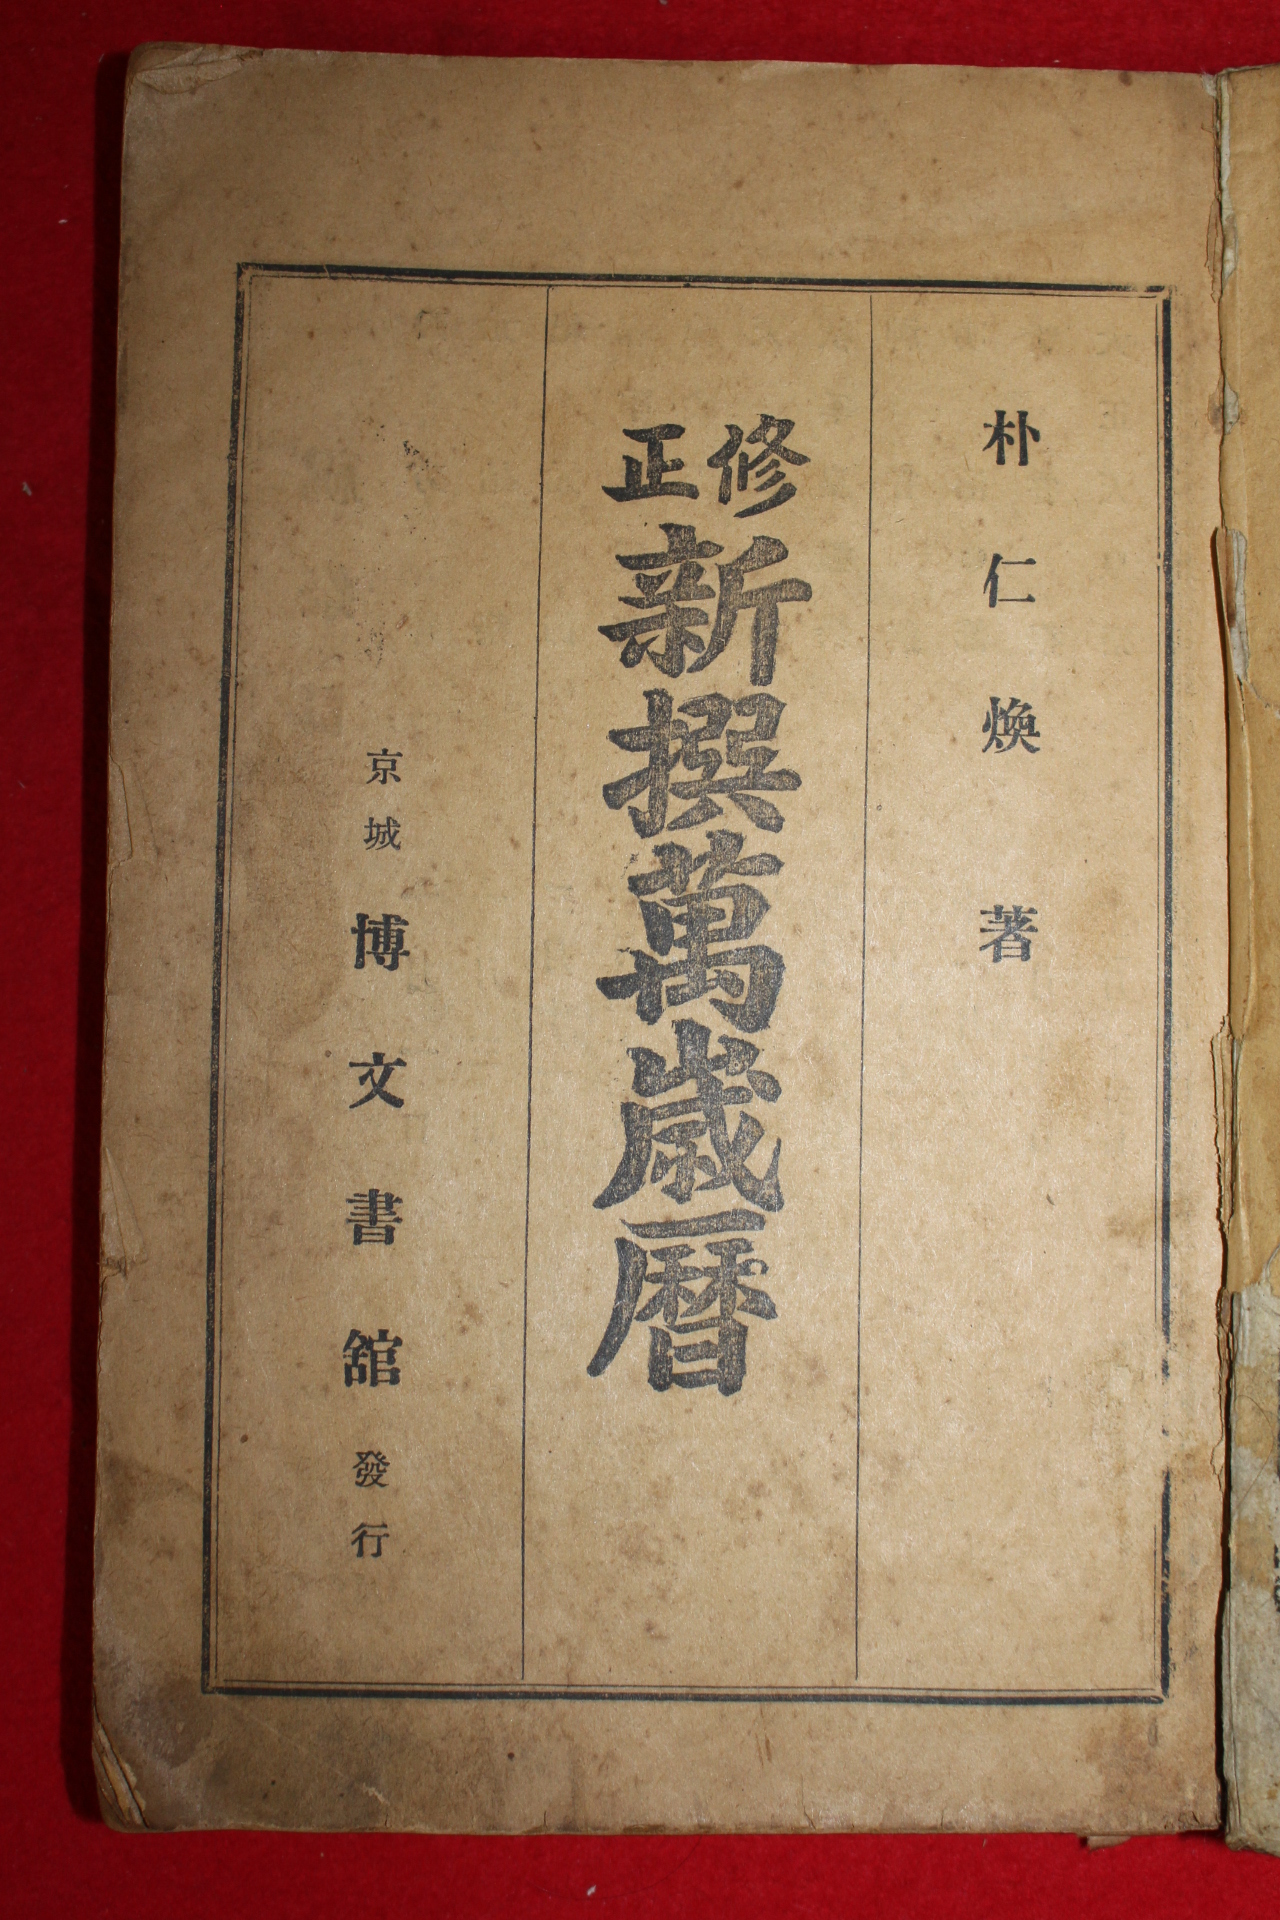 朴仁煥 著
修正 新撰萬歲曆
京城 博文書舘 發行